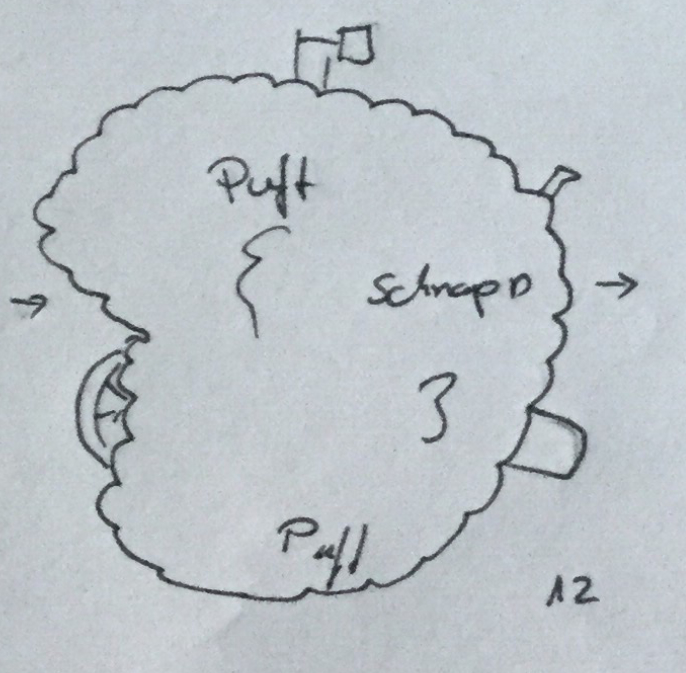 Puff
schnapp
Puff
12